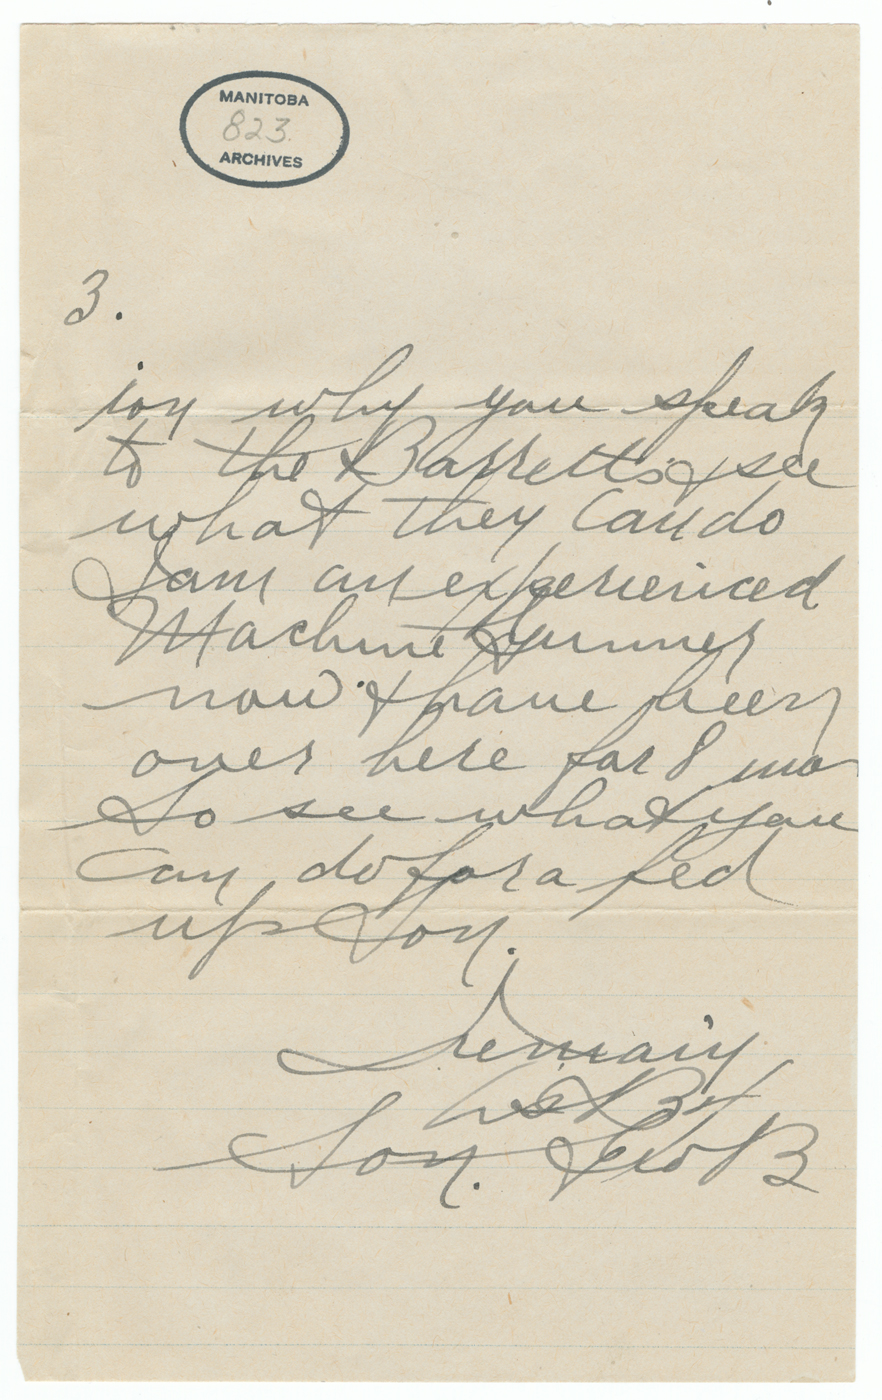 MANITOBA
823.
ARCHIVES
3.
ion why you speak
to the Barretts & see
what they can do
I am an experienced
Machine Gunner
now & have been
over here for 8 mo
So see what you
can do for a fed
up Son.
I remain
Son. Geo B